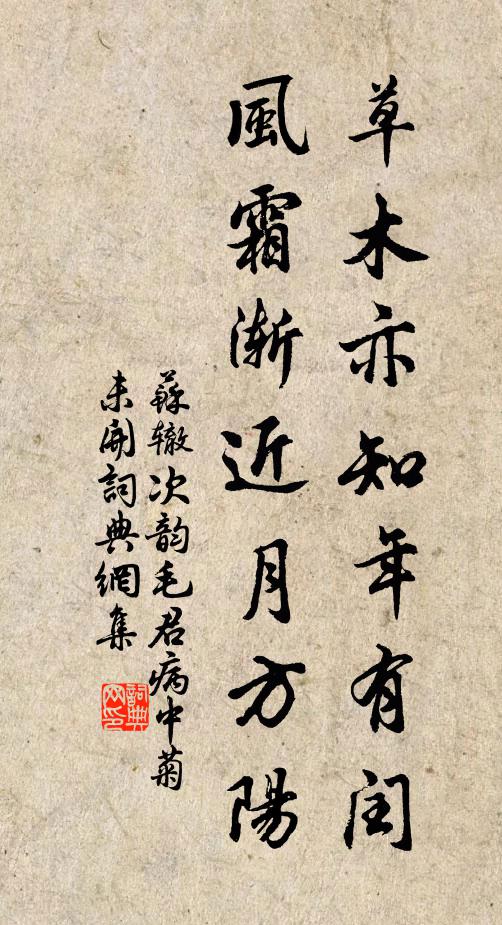 草木亦知年有閏
風霜漸近月方陽
蘇辙次韵毛君病中菊
未開詞典網集
詞典网印